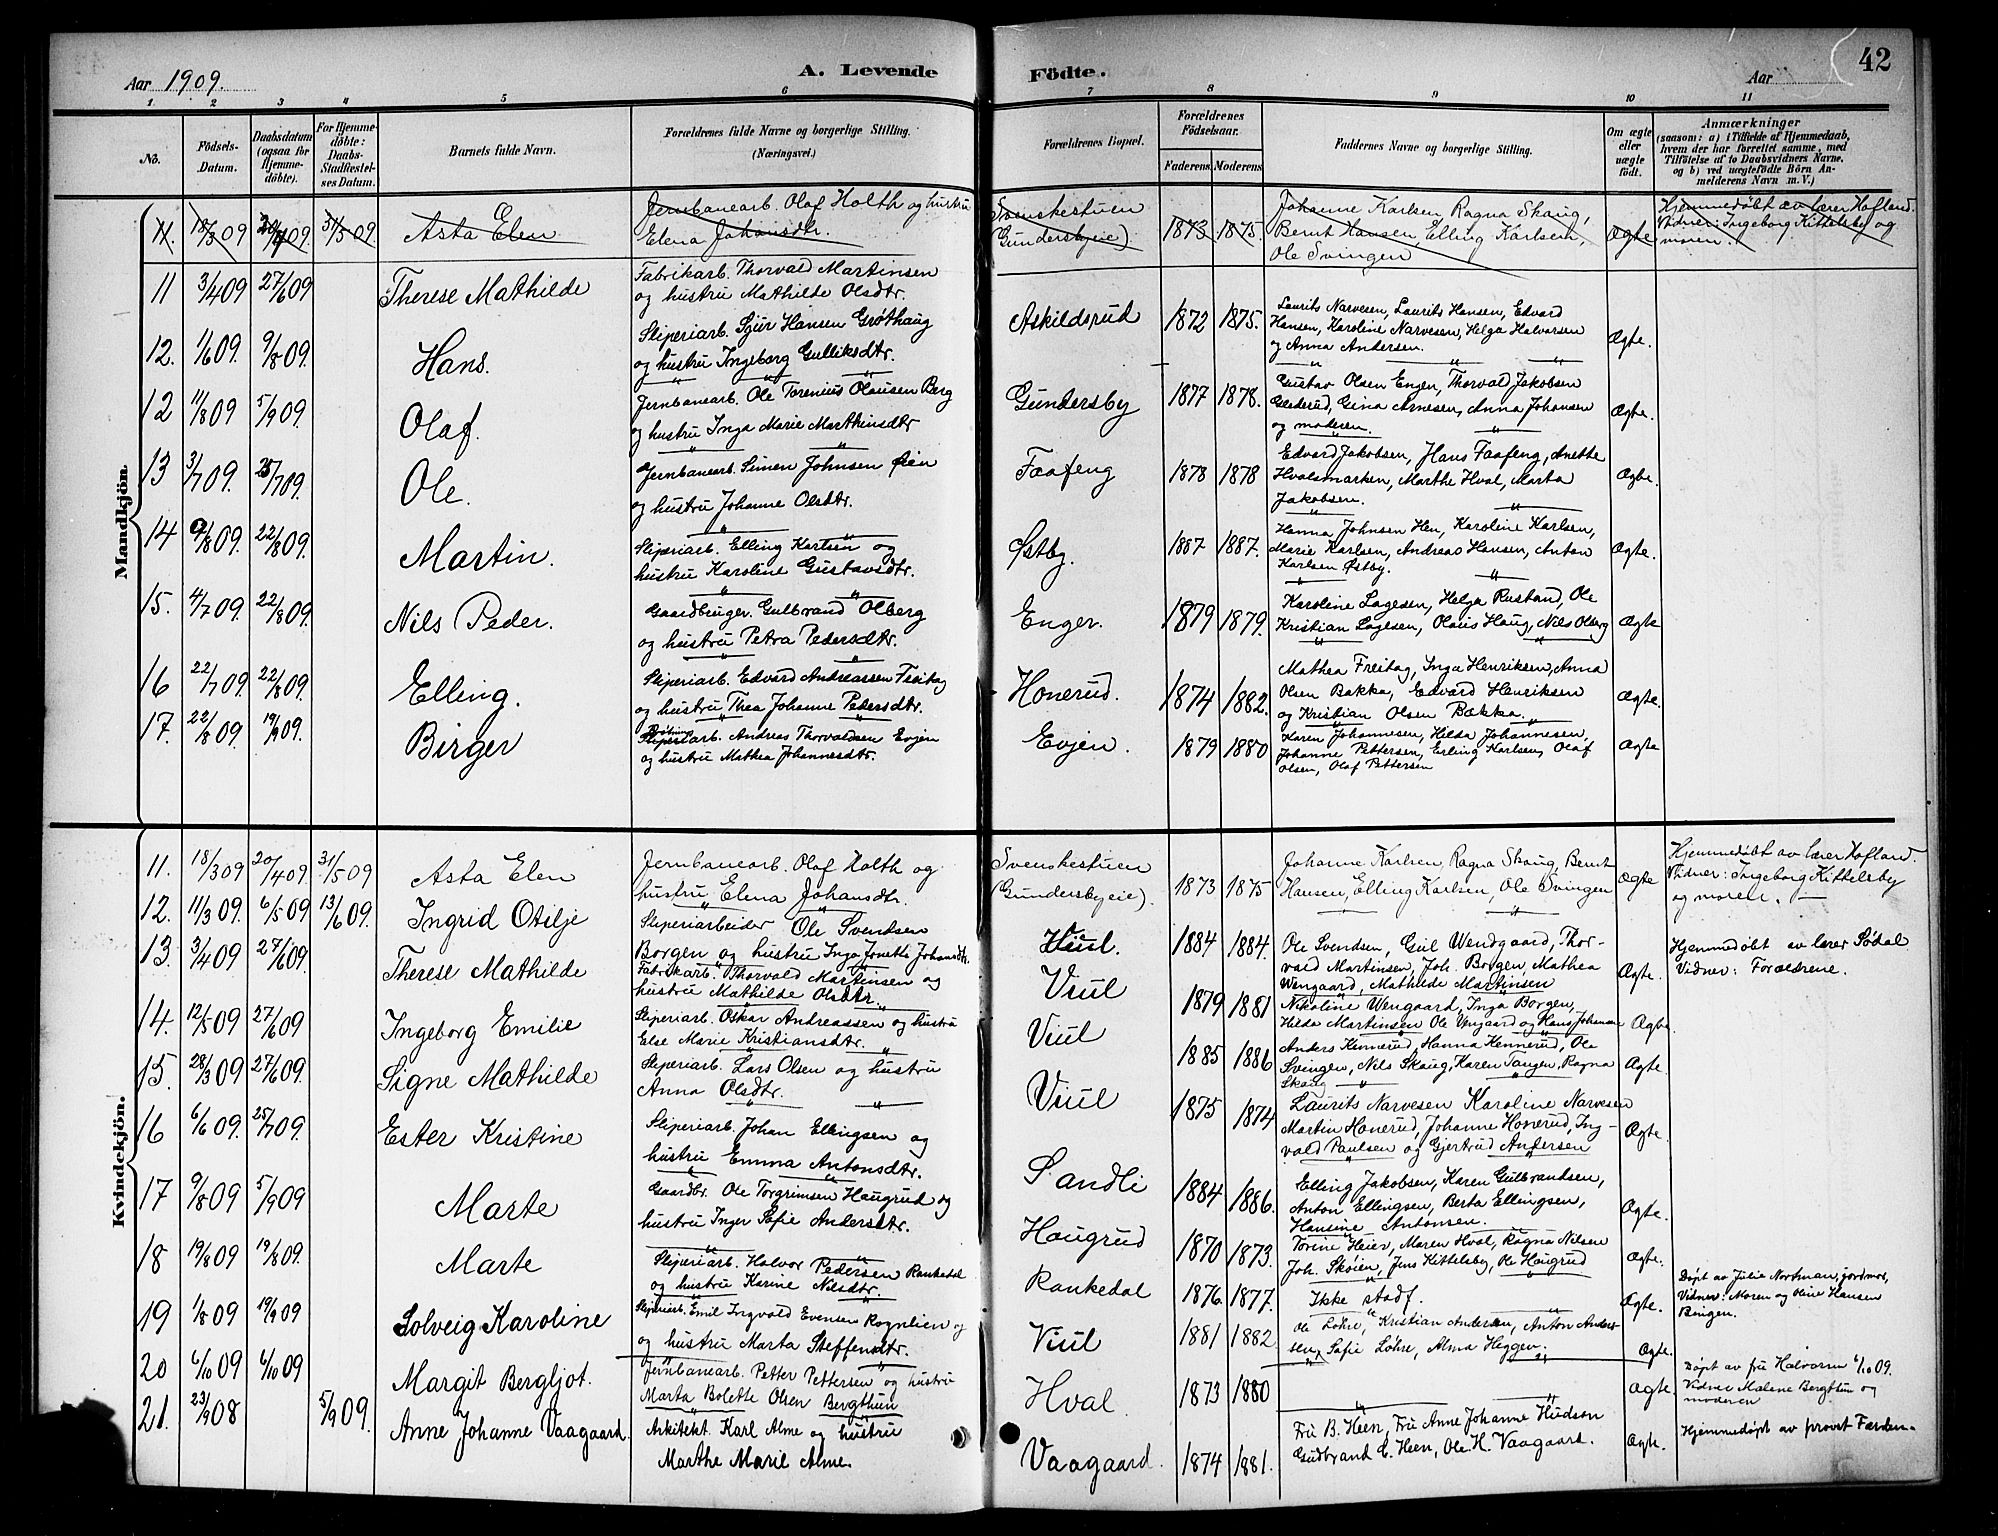 Aar 1909.
A. Levende Födte.
Aar
42
1 2 3 4 5 6 7 8 9 10 11
No.
Födsels-Datum.
Daabsdatum (ogsaa for Hjemme-döbte).
For Hjemme-döbte: Daabs-Stadfæstel-ses Datum.
Barnets fulde Navn.
Forældrenes fulde Navne og borgerlige Stilling. (Næringsvei.)
Forældrenes Bopæl.
Forældrenes Födselsaar.
Faderens. Moderens.
Faddernes Navne og borgerlige Stilling.
Om ægte eller uægte födt.
Anmærkninger
(saasom: a) i Tilfælde af Hjemmedaab, hvem der har forrettet samme, med Tilföielse af to Daabsvidners Navne, og b) ved uægtefödte Börn An-melderens Navn m. V.)
Mandkjön.
11. 18/3 09 20/4 09. 31/5 09. Asta Elen Jernbanearb. Olaf Holth og hustru Elena Johansdtr. Svenskestuen (Gundersbyeie) 1873. 1875. Johanne Karlsen, Ragna Skaug, Bernt Hansen, Elling Karlsen, Ole Svingen Ægte Hjemmedøbt av lærer Hofland. Vidner: Ingeborg Kittelsby og moren.
11 3/4 09 27/6 09 Therese Mathilde Fabrikarb. Thorvald Martinsen og hustru Mathilde Olsdtr.
12. 1/6 09. 9/8 09 Hans. Sliperiarb. Sjur Hansen Grøthaug og hustru Ingeborg Gulliksdtr. Askildsrud 1872 1875. Laurits Narvesen, Laurits Hansen, Edvard Hansen, Karoline Narvesen, Helga Halvorsen og Anna Andersen. Ægte.
12 11/8 09 5/9 09. Olaf. Jernbanearb. Ole Torenius Olausen Berg og hustru Inga Marie Marthinsdtr Gundersby 1877 1878. Gustav Olsen Enger, Thorvald Jakobsen Gina Arnesen, Anna Johansen og moderen. Ægte.
13 3/7 09. 25/7 09. Ole. Jernbanearb. Simen Johnsen Øien og hustru Johanne Olsdtr. Faafeng 1878 1878 Edvard Jakobsen, Hans Faafeng, Anette Hvalsmarken, Marthe Hval, Marta Jakobsen. Ægte.
14 9/8 09. 22/8 09. Martin. Sliperiarb. Elling Karlsen og hustru Karoline Gustavsdtr. Østby. 1887 1887. Hanna Johnsen Hen, Karoline Karlsen, Marie Karlsen, Andreas Hansen, Anton Karlsen Østby. Ægte.
15. 4/7 09. 22/8 09. Nils Peder. Gaardbruger. Gulbrand Olberg og hustru Petra Pedersdtr. Enger. 1879 1879. Karoline Lagesen, Helga Rustand, Ole Kristian Lagesen, Olaus Haug, Nils Olberg Ægte
16 22/7 09. 22/8 09. Elling. Sliperiarb. Edvard Andreassen Freitag og hustru Thea Johanne Pedersdtr. Honerud. 1874 1882. Mathea Freitag, Inga Henriksen, Anna Olsen Bakka, Edvard Henriksen og Kristian Olsen Bakka. Ægte.
17. 22/8 09. 19/9 09. Birger Sliperiarb. Andreas Thorvaldsen Evjen og hustru Mathea Johannesdtr. Evjen. 1879 1880 Karen Johannesen, Hilda Johannesen, Johanne Pettersen, Erling Karlsen, Olaf Olsen, Olaf Pettersen Ægte
Kvindekjön.
11. 18/3 09 20/4 09 31/5 09 Asta Elen Jernbanearb. Olaf Holth og hustru Elena Johansdtr. Svenskestuen (Gundersbyeie). 1873 1875 Johanne Karlsen, Ragna Skaug, Bernt Hansen, Elling Karlsen, Ole Svingen Ægte Hjemmedøbt av lærer Hofland. Vidner: Ingeborg Kittelsby og moren.
12. 11/3 09. 6/5 09 13/6 09. Ingrid Otilje Sliperiarbeider Ole Svendsen Borgen og hustru Inga Jonette Johansdtr. Viul. 1884 1884. Ole Svendsen, Gul Wendgaard, Thor-vald Martinsen, Joh. Borgen, Mathea Wengaard, Mathilde Martinsen Ægte. Hjemmedøbt av lærer Sødal Vidner: Forældrene.
13. 3/4 09 27/6 09. Therese Mathilde Fabrikarb. Thorvald Martinsen og hustru Mathilde Olsdtr. Viul 1879 1881 Nikoline Wengaard, Inga Borgen, Hilda Martinsen Ole Vengaard og Hans Johansen Ægte.
14. 12/5 09 27/6 09 Ingeborg Emilie Sliperiarb. Oskar Andreassen og hustru Else Marie Kristiansdtr. Viul 1885 1886 Anders Kennerud, Hanna Kennerud, Ole Svingen, Nils Skaug, Karen Tangen, Ragna Skaug Ægte.
15. 28/3 09 27/6 09. Signe Mathilde Sliperiarb. Lars Olsen og hustru Anna Olsdtr. Viul 1875 1874 Laurits Narvesen Karoline Narvesen Martin Honerud, Johanne Honerud, Ing-vald Paulsen og Gjertrud Andersen Ægte.
16 6/6 09. 25/7 09. Ester Kristine Sliperiarb. Johan Ellingsen og hustru Emma Antonsdtr. Sandli 1884 1886. Elling Jakobsen, Karen Gulbrandsen, Anton Ellingsen, Berta Ellingsen, Hansine Antonsen. Ægte.
17 9/8 09 5/9 09 Marte Gaardbr. Ole Torgrimsen Haugrud og hustru Inger Sofie Andersdtr. Haugrud 1870 1873. Torine Heier, Maren Hval, Ragna Nilsen Joh. Skøien, Jens Kittelsby, Ole Haugrud Ægte.
18 19/8 09 19/8 09. Marte Sliperiarb. Halvor Pedersen Rankedal og hustru Karine Nilsdtr. Rankedal 1876 1877. Ikke stadf. Ægte. Døpt av Julie Nortman, jordmor, Vidner: Moren og Oline Hansen Bingen.
19 1/8 09 19/9 09 Solveig Karoline Sliperiarb. Emil Ingvald Evensen Rognlien og og hustru Marta Steffensdtr. Viul 1881 1882 Ole Løhre, Kristian Andersen, Anton Ander-sen, Sofie Løhre, Alma Heggen. Ægte.
20 6/10 09 6/10 09 Margit Bergljot. Jernbanearb. Petter Pettersen og hustru Marta Bolette Olsen Bergthun Hval. 1873 1880 Ægte. Døpt av fru Halvorsen 6/10 09. Vidner Malene Bergthun og moderen
21. 23/9 08 5/9 09. Anne Johanne Vaagaard Arkitekt. Karl Alme og hustru Marthe Marie Alme. Vaagaard. 1874 1881. Fru B. Heen, Fru Anne Johanne Hudson Gudbrand C. Heen, Ole H. Vaagaard. Ægte. Hjemmedøpt av provst Færden.